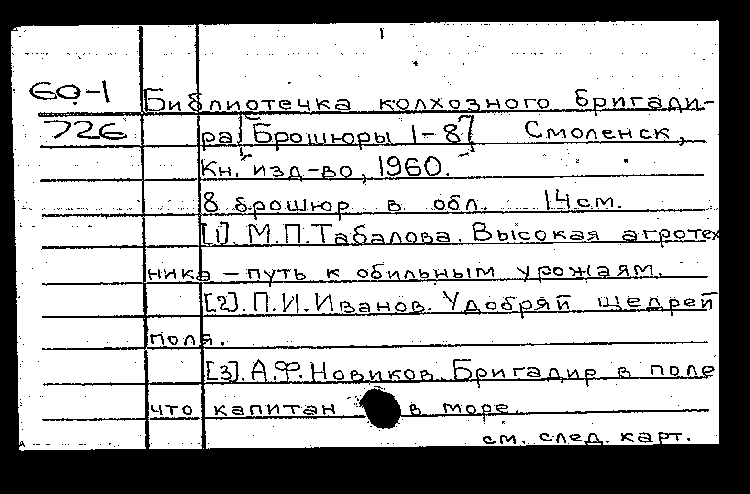 60-1 Библиотечка колхозного бригади-
726 ра [Брошюры 1-8] Смоленск,
Кн. изд-во, 1960.
8 брошюр в обл. 14 см.
[1]. М.П. Табалова. Высокая агротех
ника – путь к обильным урожаям.
[2]. П.И. Иванов. Удобряй щедрей
поля.
[3]. А.Ф. Новиков. Бригадир в поле
что капитан в море.
см. след. карт.